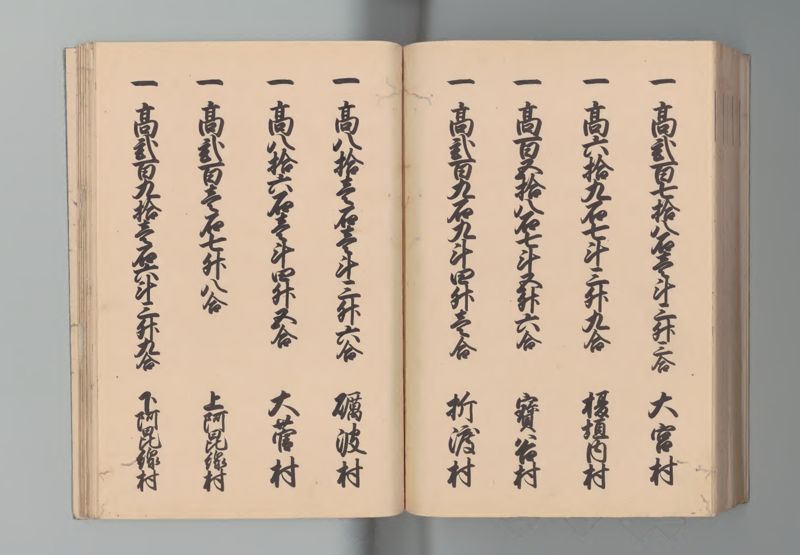 一 高弐百七拾八石壱斗三升二合 大宮村
一 高六拾九石七斗三升九合 榎垣内村
一 高百五拾八石七斗五升六合 寶谷村
一 高弐百九石九斗四升壱合 折渡村
一 高八拾壱石壱斗三升六合 礪波村
一 高八拾六石壱斗四升五合 大菅村
一 高弐百壱石七升八合 上阿毘縁村
一 高弐百九拾壱石六斗三升九合 下阿毘縁村